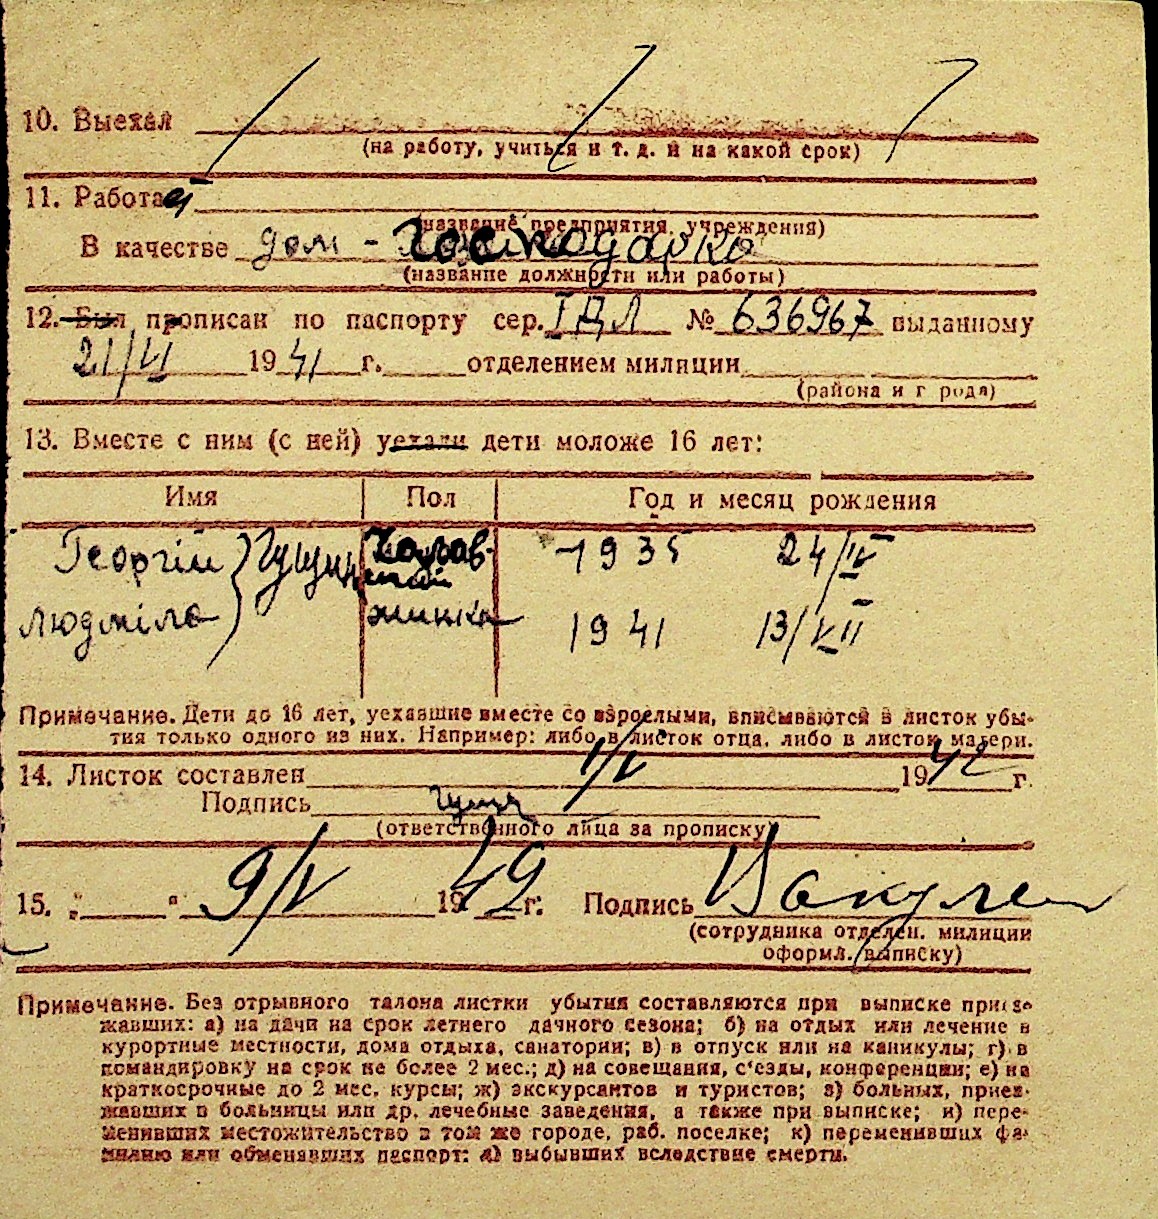 10. Выехал
(на работу, учиться и т. д. и на какой срок)
11. Работает
(название предприятия, учреждения)
В качестве дом - господарка
(название должности или работы)
12. Был прописан по паспорту сер. ІДЛ № 636967 выданному
21/VI 1941 г. отделением милиции
(района и города)
13. Вместе с ним (с ней) уехали дети моложе 16 лет:
Имя Пол Год и месяц рождения
Георгій 1935 24/IV
Людміла жинка 1941 13/VII
Примечание. Дети до 16 лет, уехавшие вместе со взрослыми, вписываются в листок убы-
тия только одного из них. Например: либо в листок отца, либо в листок матери.
14. Листок составлен 1/V 1942 г.
Подпись
(ответственного лица за прописку)
15. „ “ 9/V 1942 г. Подпись
(сотрудника отделен. милиции
оформл. выписку)
Примечание. Без отрывного талона листки убытия составляются при выписке приез-
жавших: а) на дачи на срок летнего дачного сезона; б) на отдых или лечение в
курортные местности, дома отдыха, санатории; в) в отпуск или на каникулы; г) в
командировку на срок не более 2 мес.; д) на совещания, с'езды, конференции; е) на
краткосрочные до 2 мес. курсы; ж) экскурсантов и туристов; з) больных, приез-
жавших в больницы или др. лечебные заведения, а также при выписке; и) пере-
менивших местожительство в том же городе, раб. поселке; к) переменивших фа-
милию или обменявших паспорт: л) выбывших вследствие смерти.